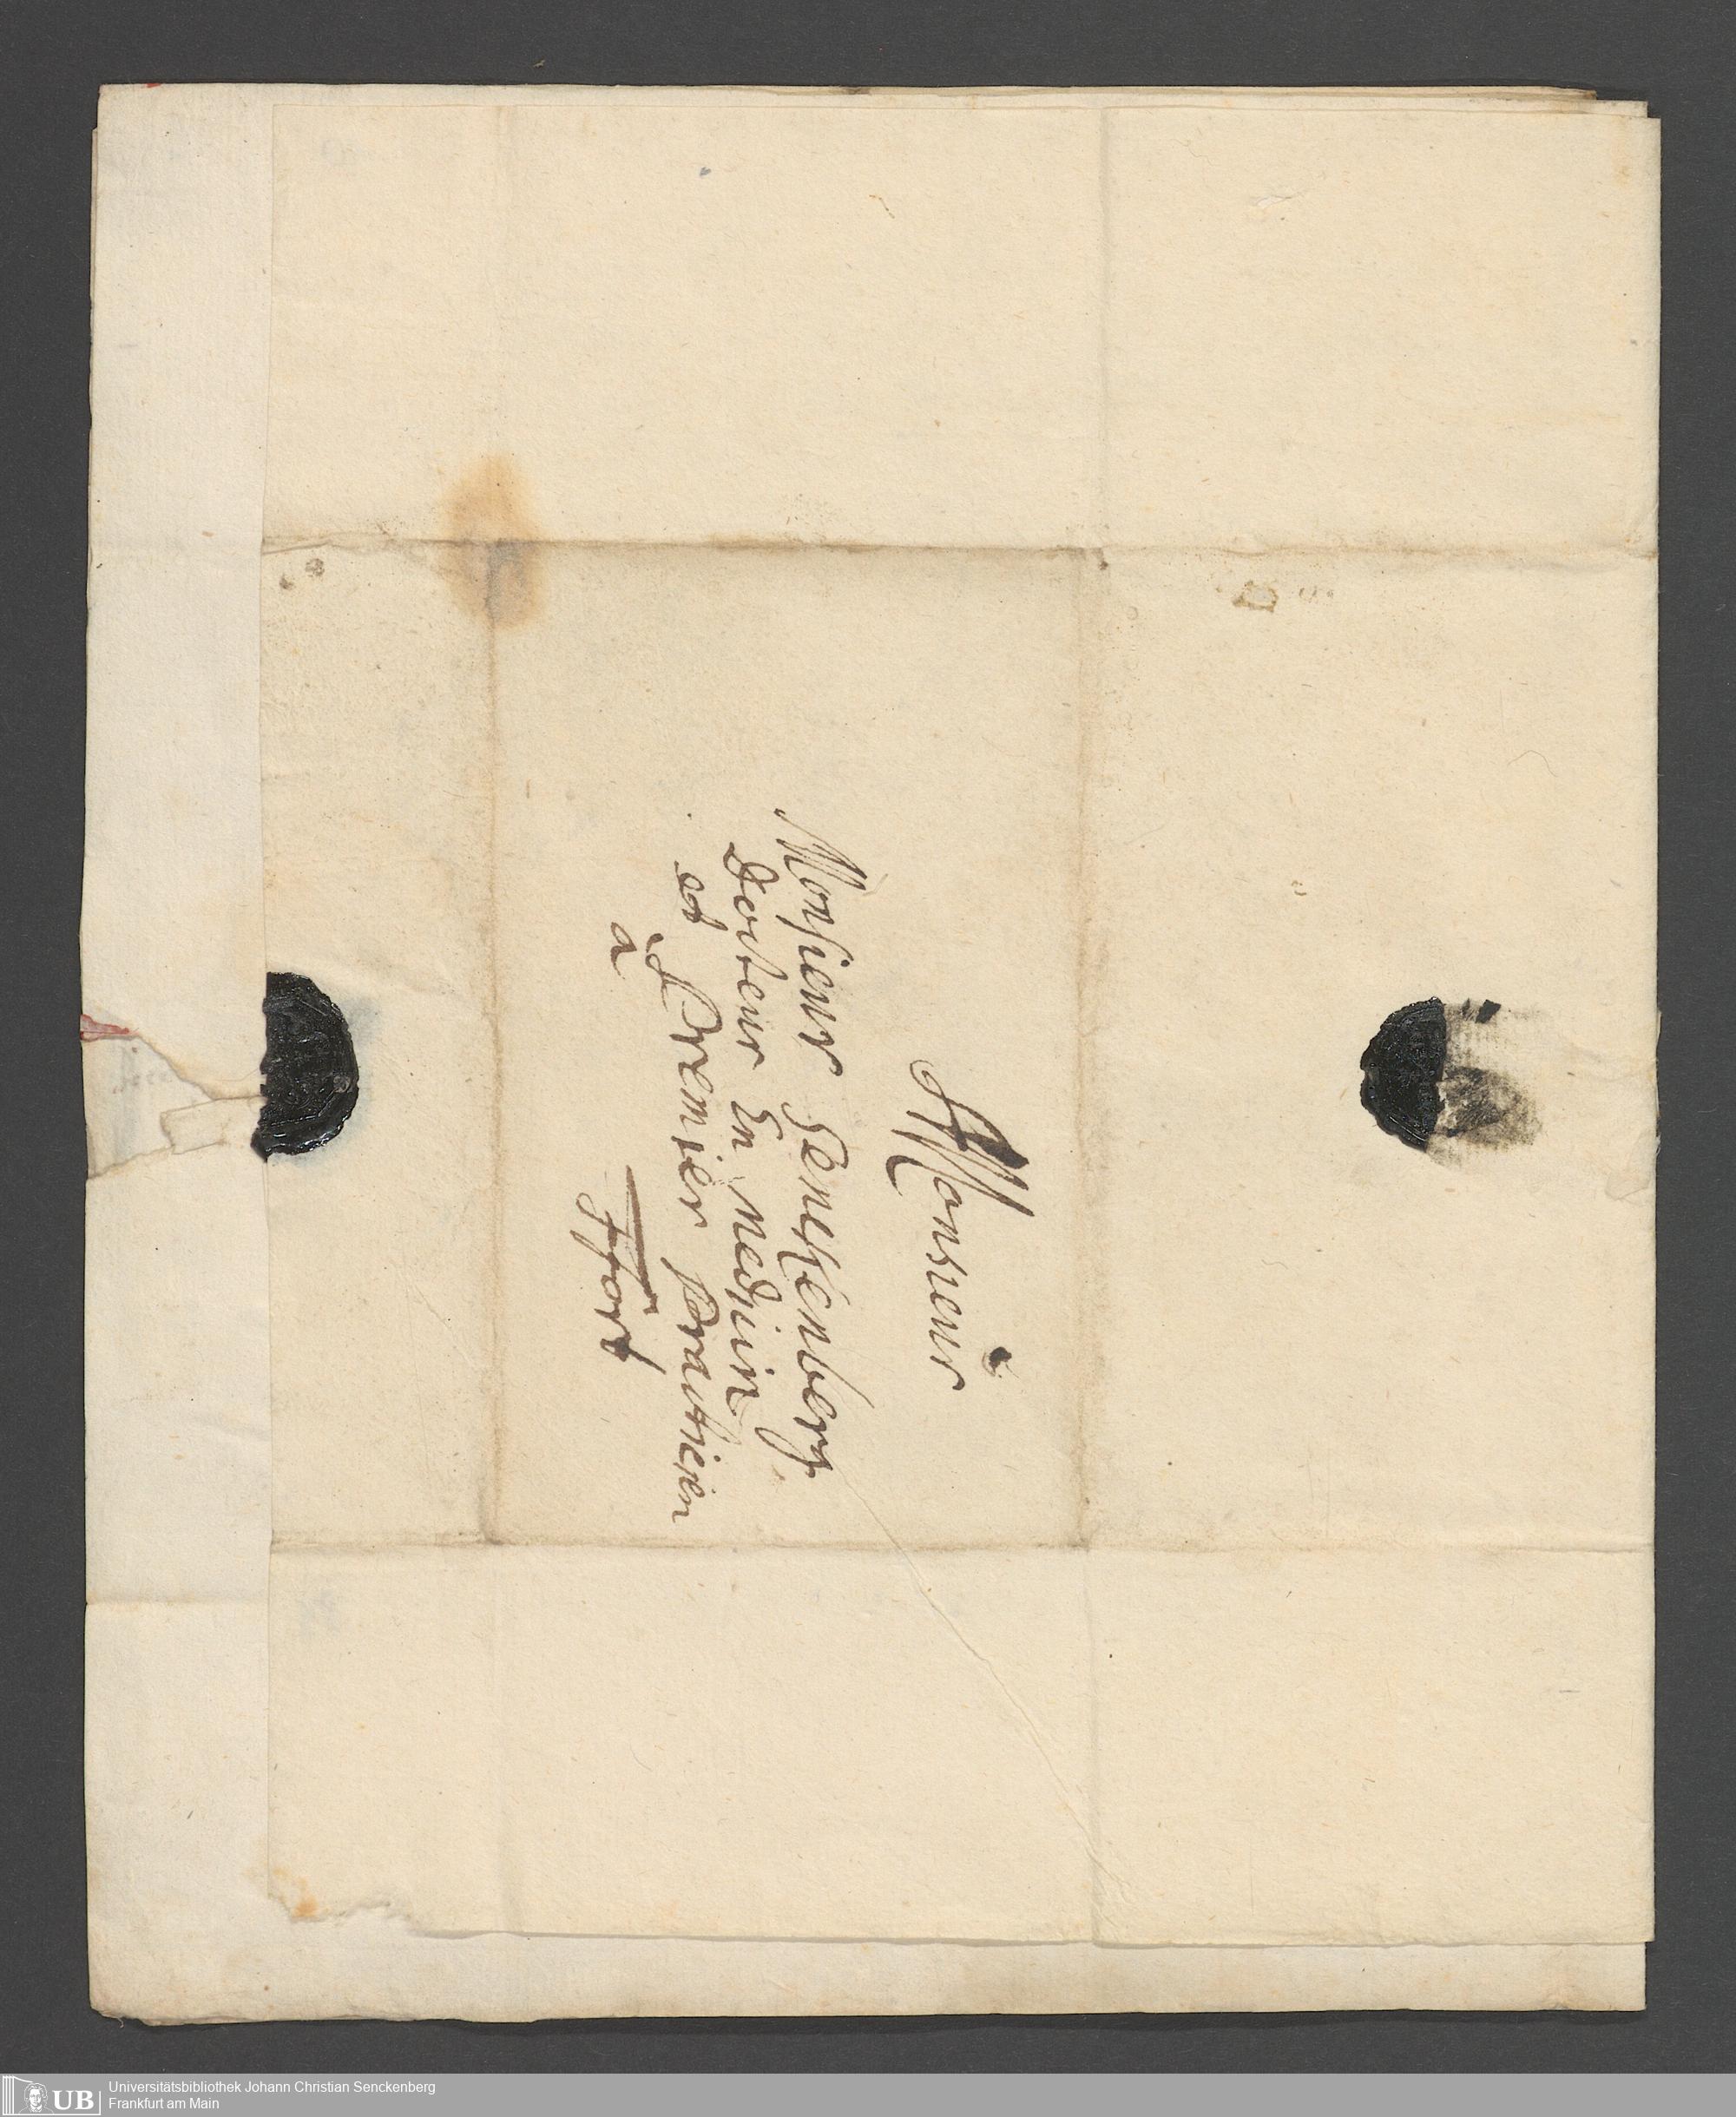 Monsieur
Monsieur Senckenberg
Docteur En Medicin
et Premier Practicien
à
ffort
Universitätsbibliothek Johann Christian Senckenberg
Frankfurt am Main
UB